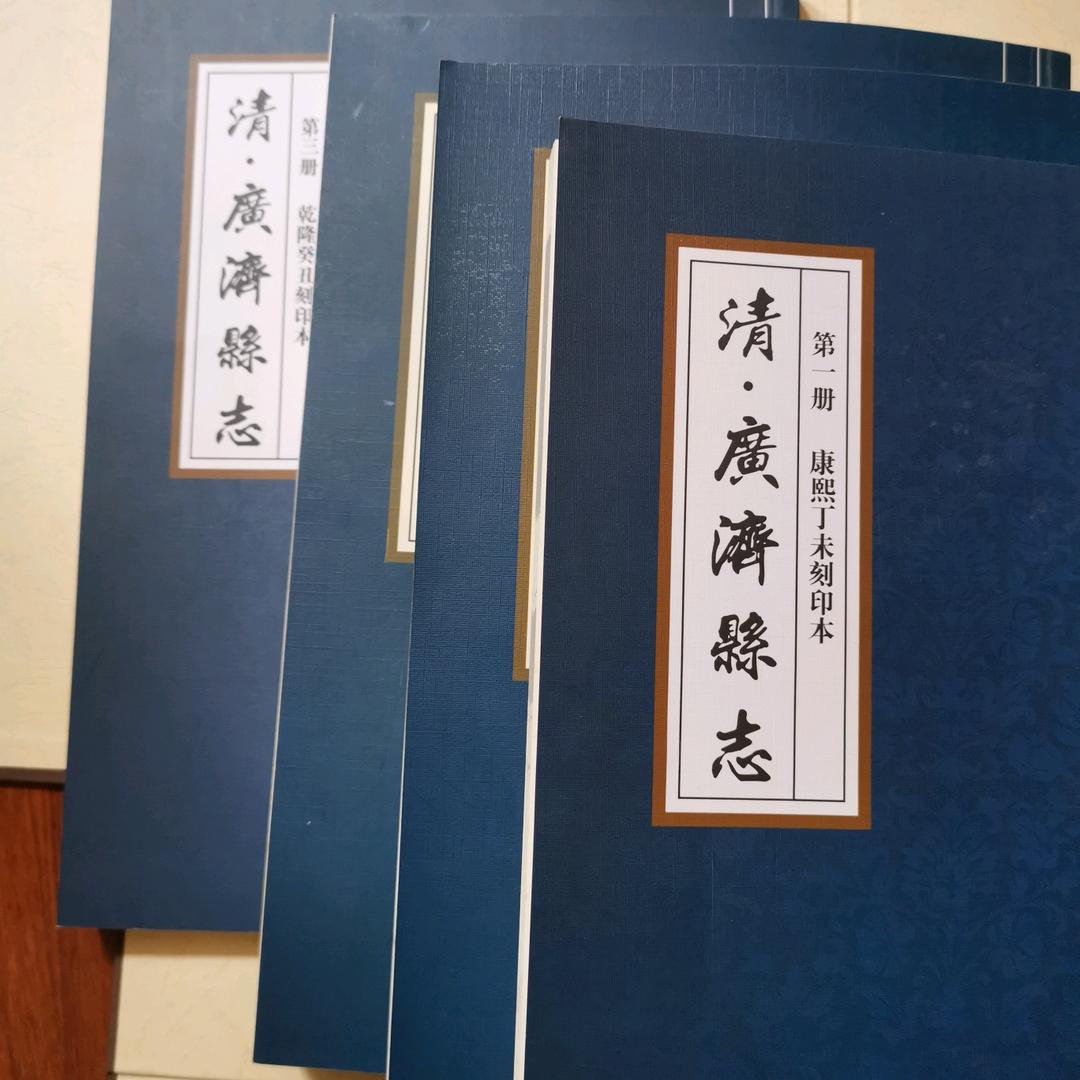 清·廣濟縣志
第三册 乾隆癸丑刻印本
清·廣濟縣志
第一册 康熙丁未刻印本